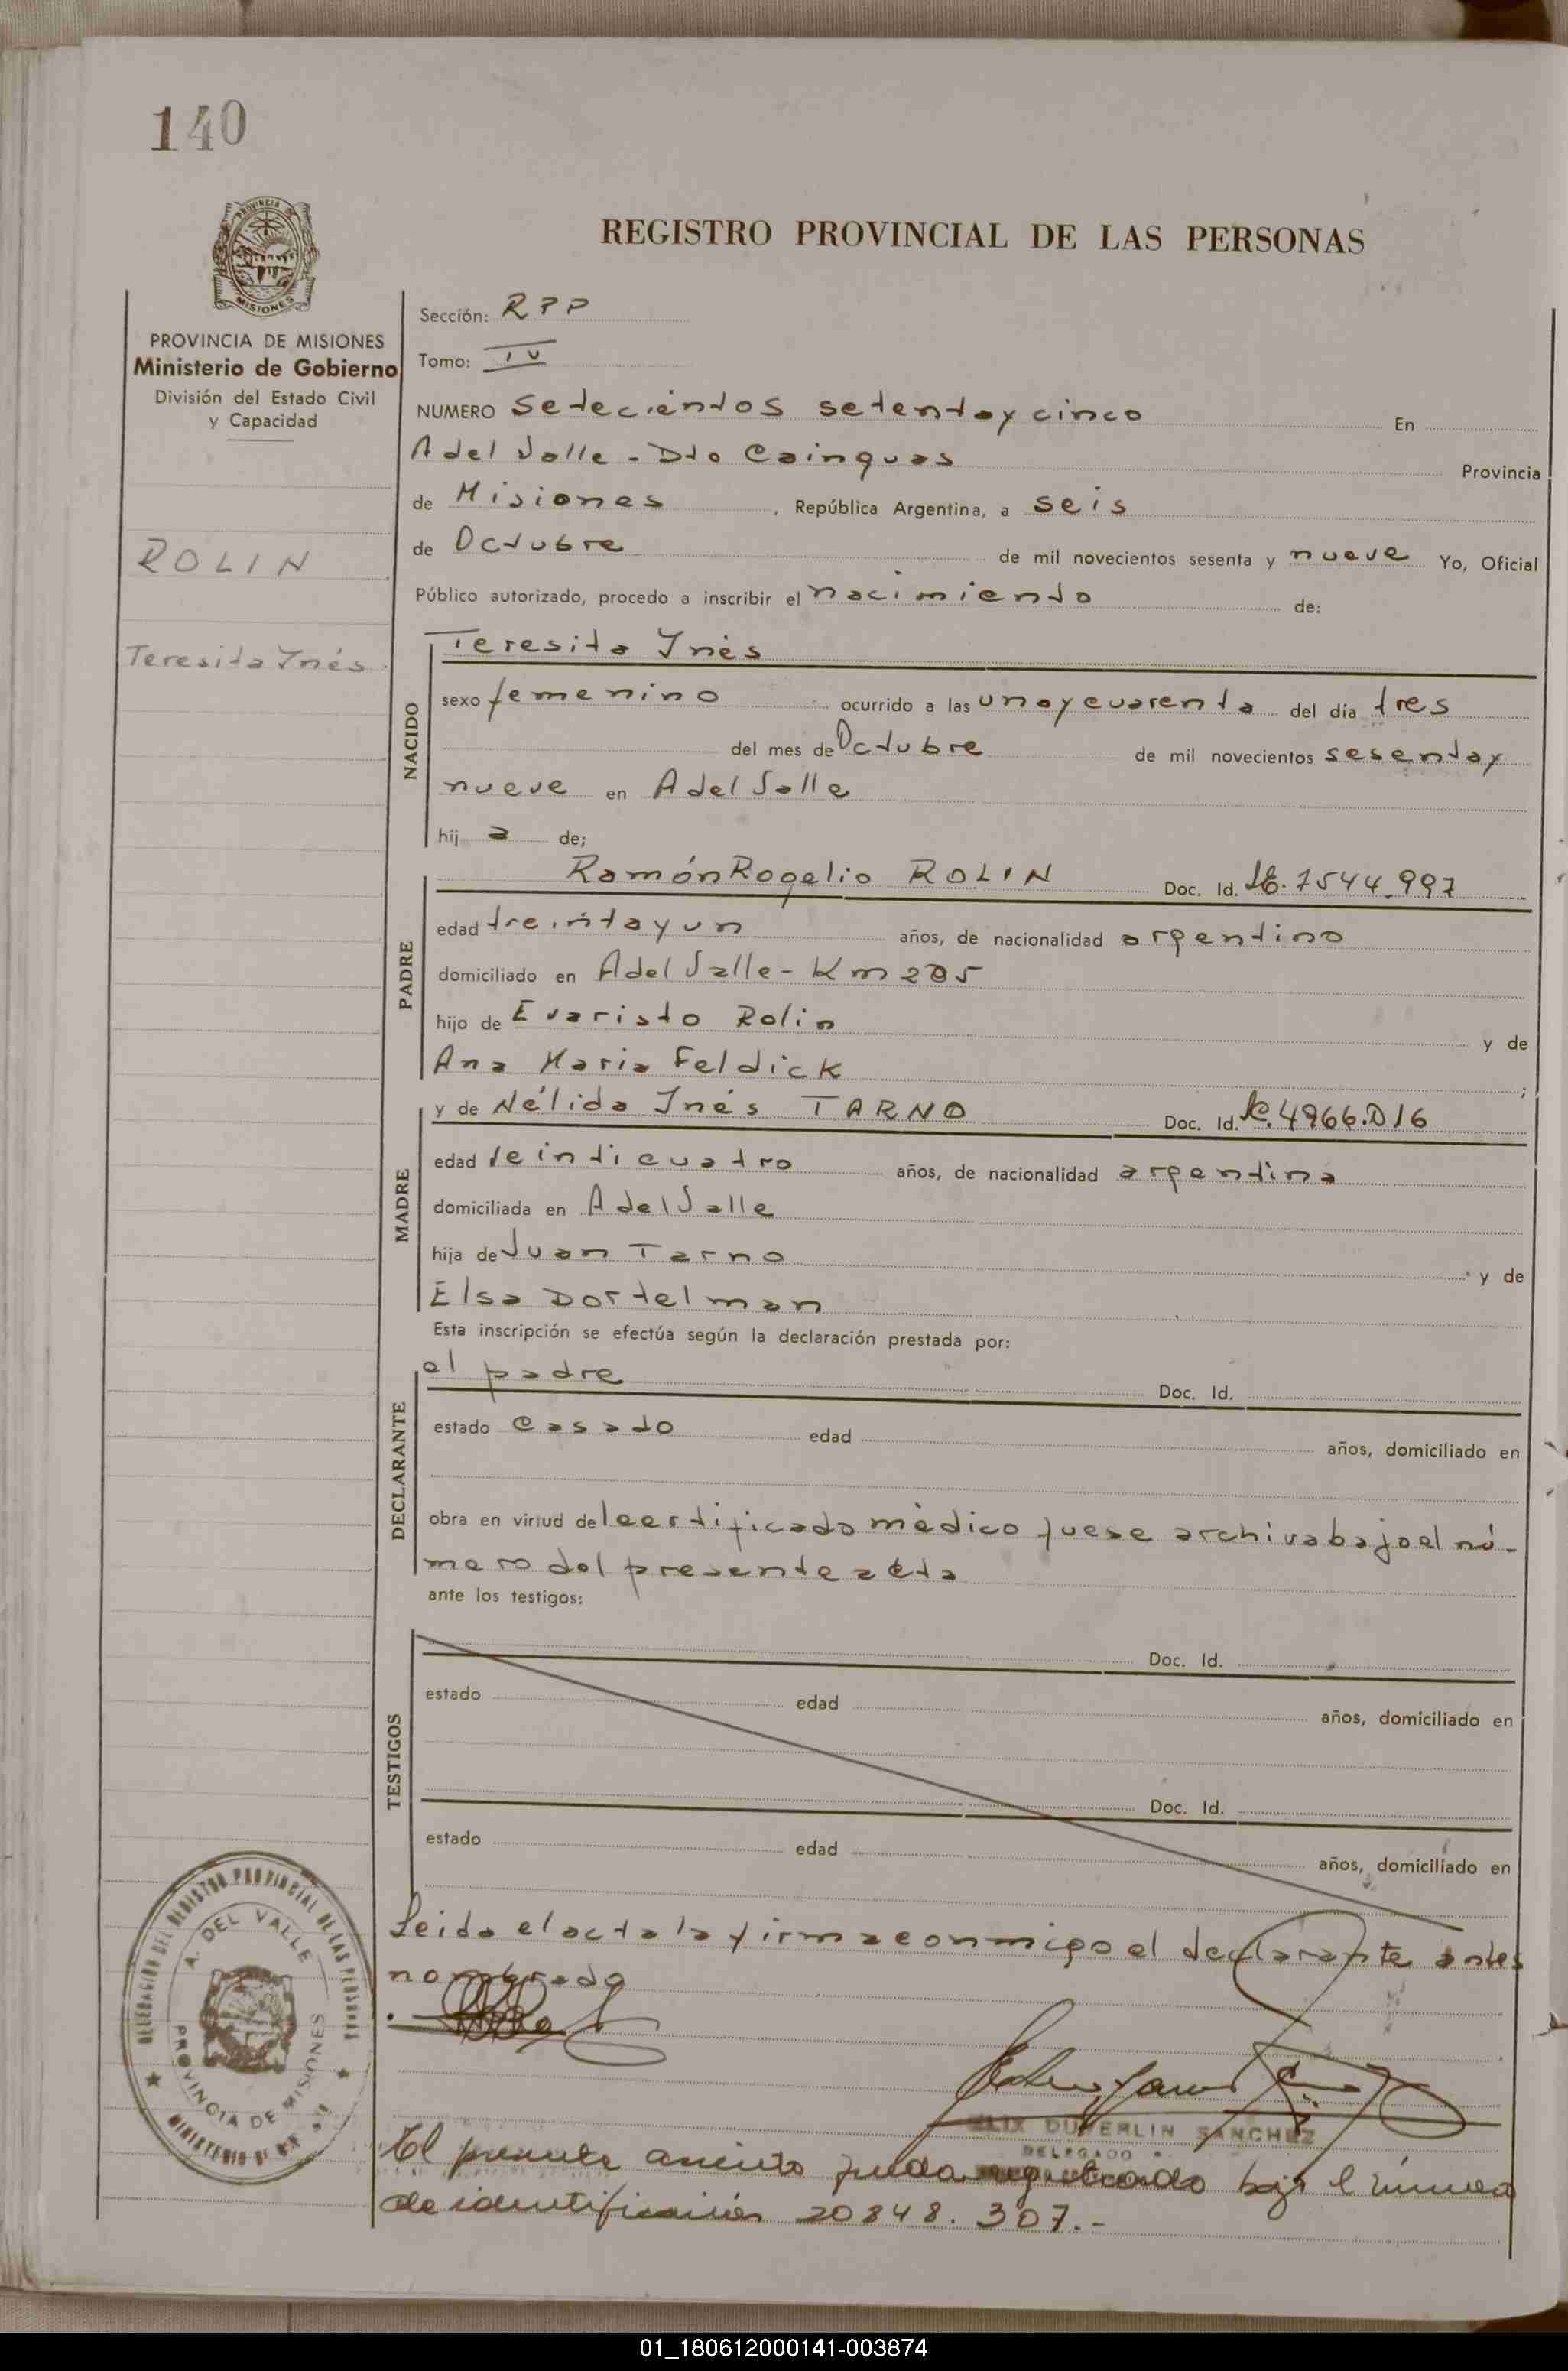 140
REGISTRO PROVINCIAL DE LAS PERSONAS
PROVINCIA DE MISIONES
Ministerio de Gobierno
División del Estado Civil
y Capacidad
ROLIN
Teresita Ynés
Sección: RPP
Tomo: IV
NUMERO Setecientos setenta y cinco En
A del Valle - Dto Cainguas Provincia
de Misiones, República Argentina, a seis
de Octubre de mil novecientos sesenta y nueve Yo, Oficial
Público autorizado, procedo a inscribir el nacimiento de:
NACIDO
Teresita Ynés
sexo femenino ocurrido a las una y cuarenta del día tres
del mes de Octubre de mil novecientos sesenta y
nueve en A del Valle
hij a de;
PADRE
Ramón Rogelio ROLIN Doc. Id. 7544.997
edad treinta y un años, de nacionalidad argentino
domiciliado en A del Valle - Km 205
hijo de Evaristo Rolin y de
Ana Maria Feldick ;
MADRE
y de Nélida Inés TARNO Doc. Id. 4966.016
edad veinticuatro años, de nacionalidad argentina
domiciliada en A del Valle
hija de Juan Tarno y de
Elsa Dortelman
Esta inscripción se efectúa según la declaración prestada por:
DECLARANTE
el padre Doc. Id.
estado casado edad años, domiciliado en
obra en virtud del certificado médico que se archiva bajo el nú-
mero del presente acta
ante los testigos:
TESTIGOS
Doc. Id.
estado edad años, domiciliado en
Doc. Id.
estado edad años, domiciliado en
Leida el acta la firma conmigo el declarante antes
nombrado
DELEGACION DEL REGISTRO PROVINCIAL DE LAS PERSONAS
A. DEL VALLE
PROVINCIA DE MISIONES
MINISTERIO DE
DUVERLIN SANCHEZ
DELEGADO
El presente asiento queda registrado bajo el número
de identificación 20848.307.-
01_180612000141-003874